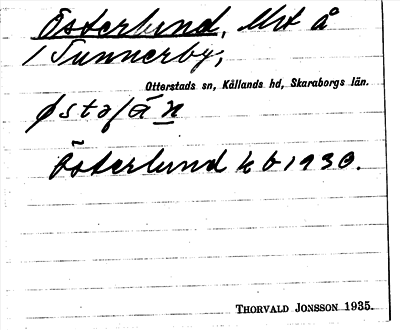 Österlund, Ut å
/ Sunnerby,
Otterstads sn, Kållands hd, Skaraborgs län.
Österlund k b 1930.
THORVALD JONSSON 1935.